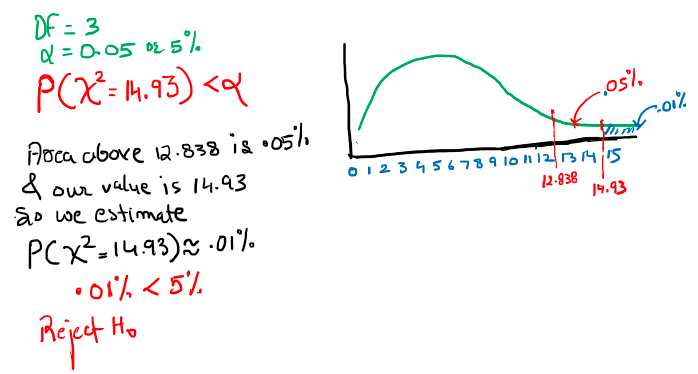 DF = 3
α = 0.05 or 5%
P(χ² = 14.93) < α
Area above 12.838 is .05%
& our value is 14.93
so we estimate
P(χ² = 14.93) ≈ .01%
.01% < 5%
Reject H₀
.05%
.01%
0 1 2 3 4 5 6 7 8 9 10 11 12 13 14 15
12.838
14.93